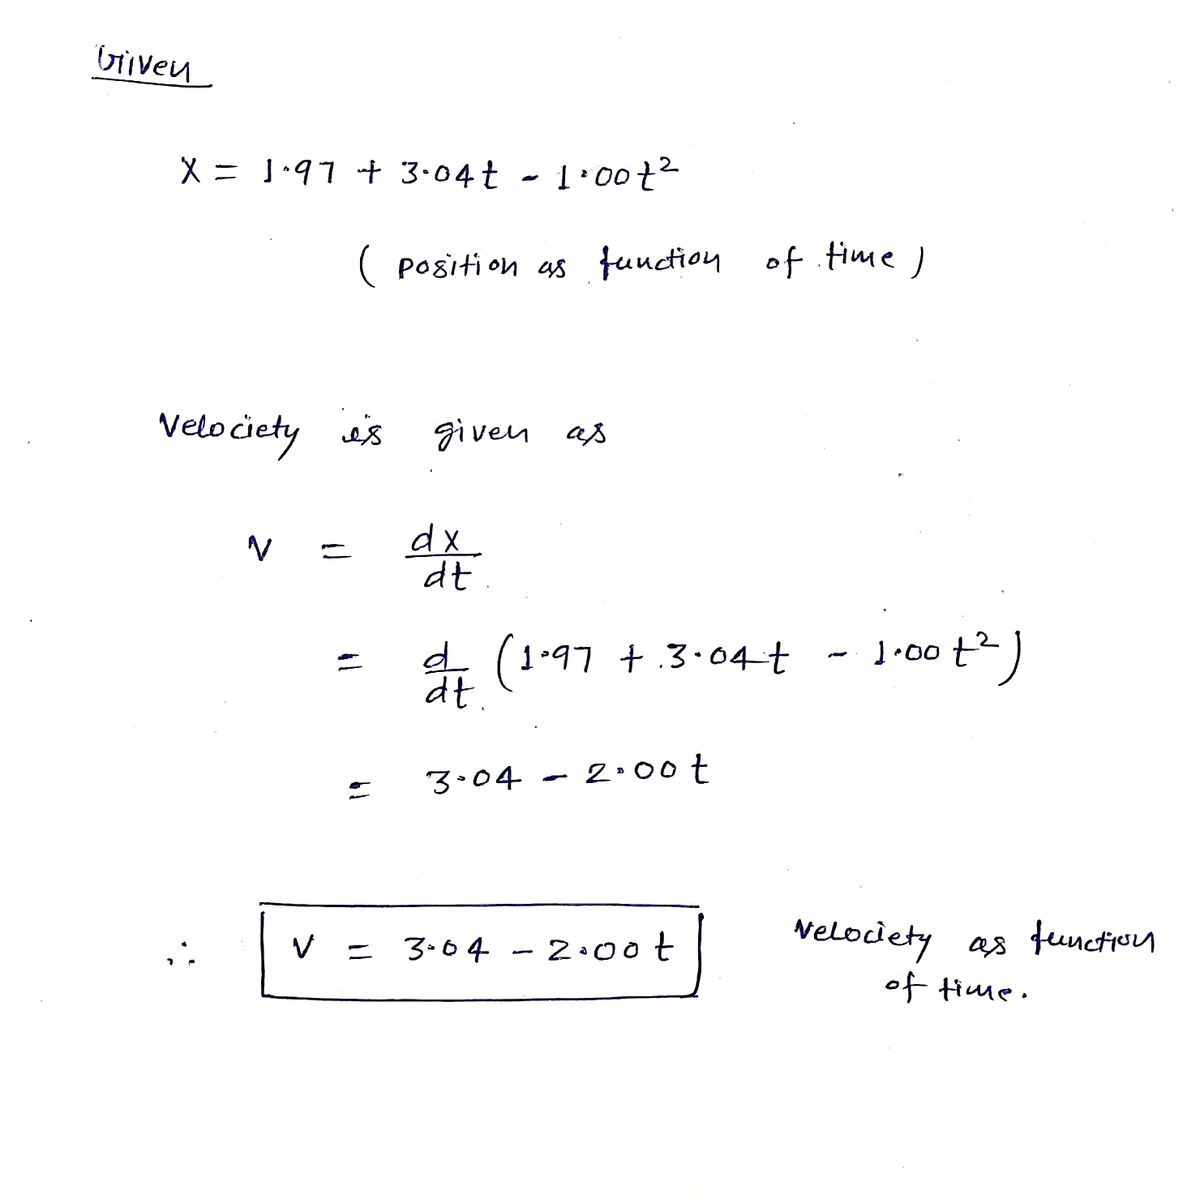 Given
X = 1.97 + 3.04t - 1.00t²
( position as function of time )
Velociety is given as
V = dx/dt
= d/dt (1.97 + 3.04t - 1.00t²)
= 3.04 - 2.00t
∴ V = 3.04 - 2.00t Velociety as function
of time.